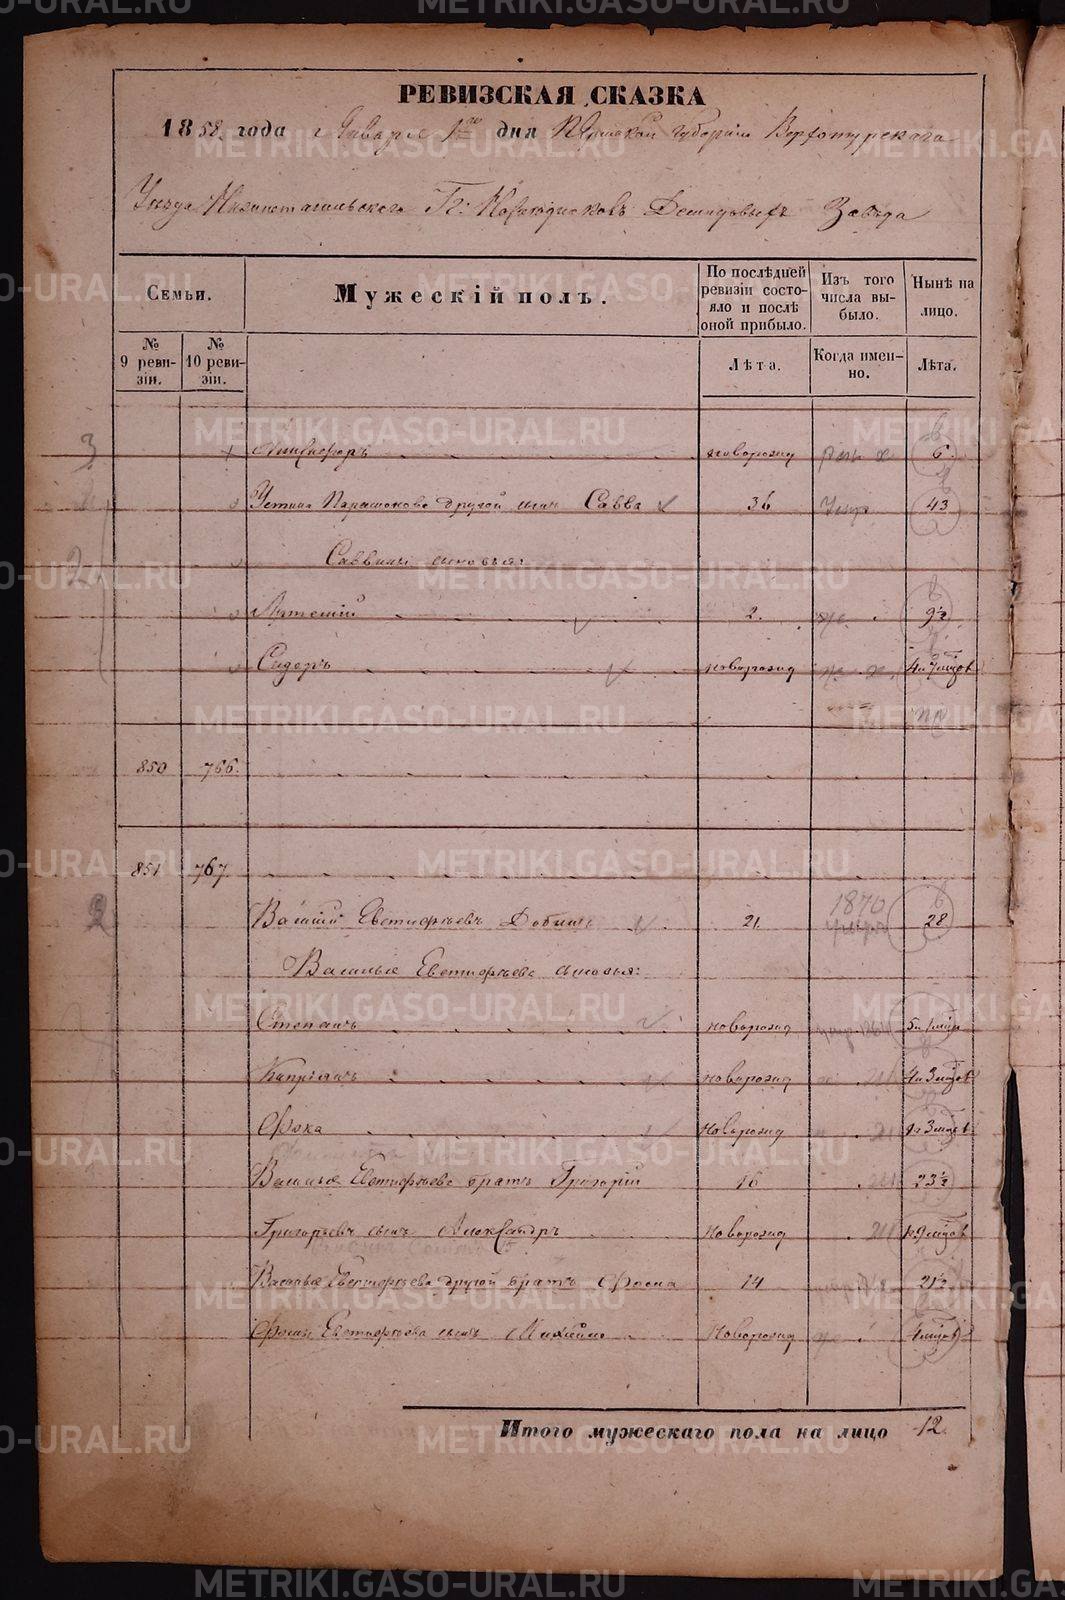 РЕВИЗСКАЯ СКАЗКА
1858 года Января 1го дня Пермской губернии Верхотурскаго
Уезда Нижнетагильскаго Гг: Наследниковъ Демидовыхъ Завода
Семьи.
Мужескій полъ.
По послѣдней ревизіи состояло и послѣ оной прибыло.
Изъ того числа выбыло.
Нынѣ на лицо.
№ 9 ревизіи.
№ 10 ревизіи.
Лѣта.
Когда именно.
Лѣта.
3
Никифоръ новорожд 6
Устина другой сынъ Савва 36 Умер 43
2
Саввины сыновья:
Артемій 2. 9½
Сидоръ новорожд 4 и 7 мѣсцов
850 766.
851 767.
1870
2
Василій Евстифѣевъ 21. умеръ 28
Василья Евстифѣева сыновья:
Степанъ новорожд 5 и 1 мѣсц
Кипріянъ новорожд 4 и 3 мѣсцов
Фока Новорожд 1 и 3 мѣсцов
Василья Евстифѣева братъ Григорій 16 23½
Григорьевъ сынъ Александръ Новорожд 1 и 9 мѣсцов
Василья Евстифѣева другой братъ Фома 14 21½
Фомы Евстифѣева сынъ Михайло Новорожд 4 мѣсцов
Итого мужескаго пола на лицо 12.
METRIKI.GASO-URAL.RU